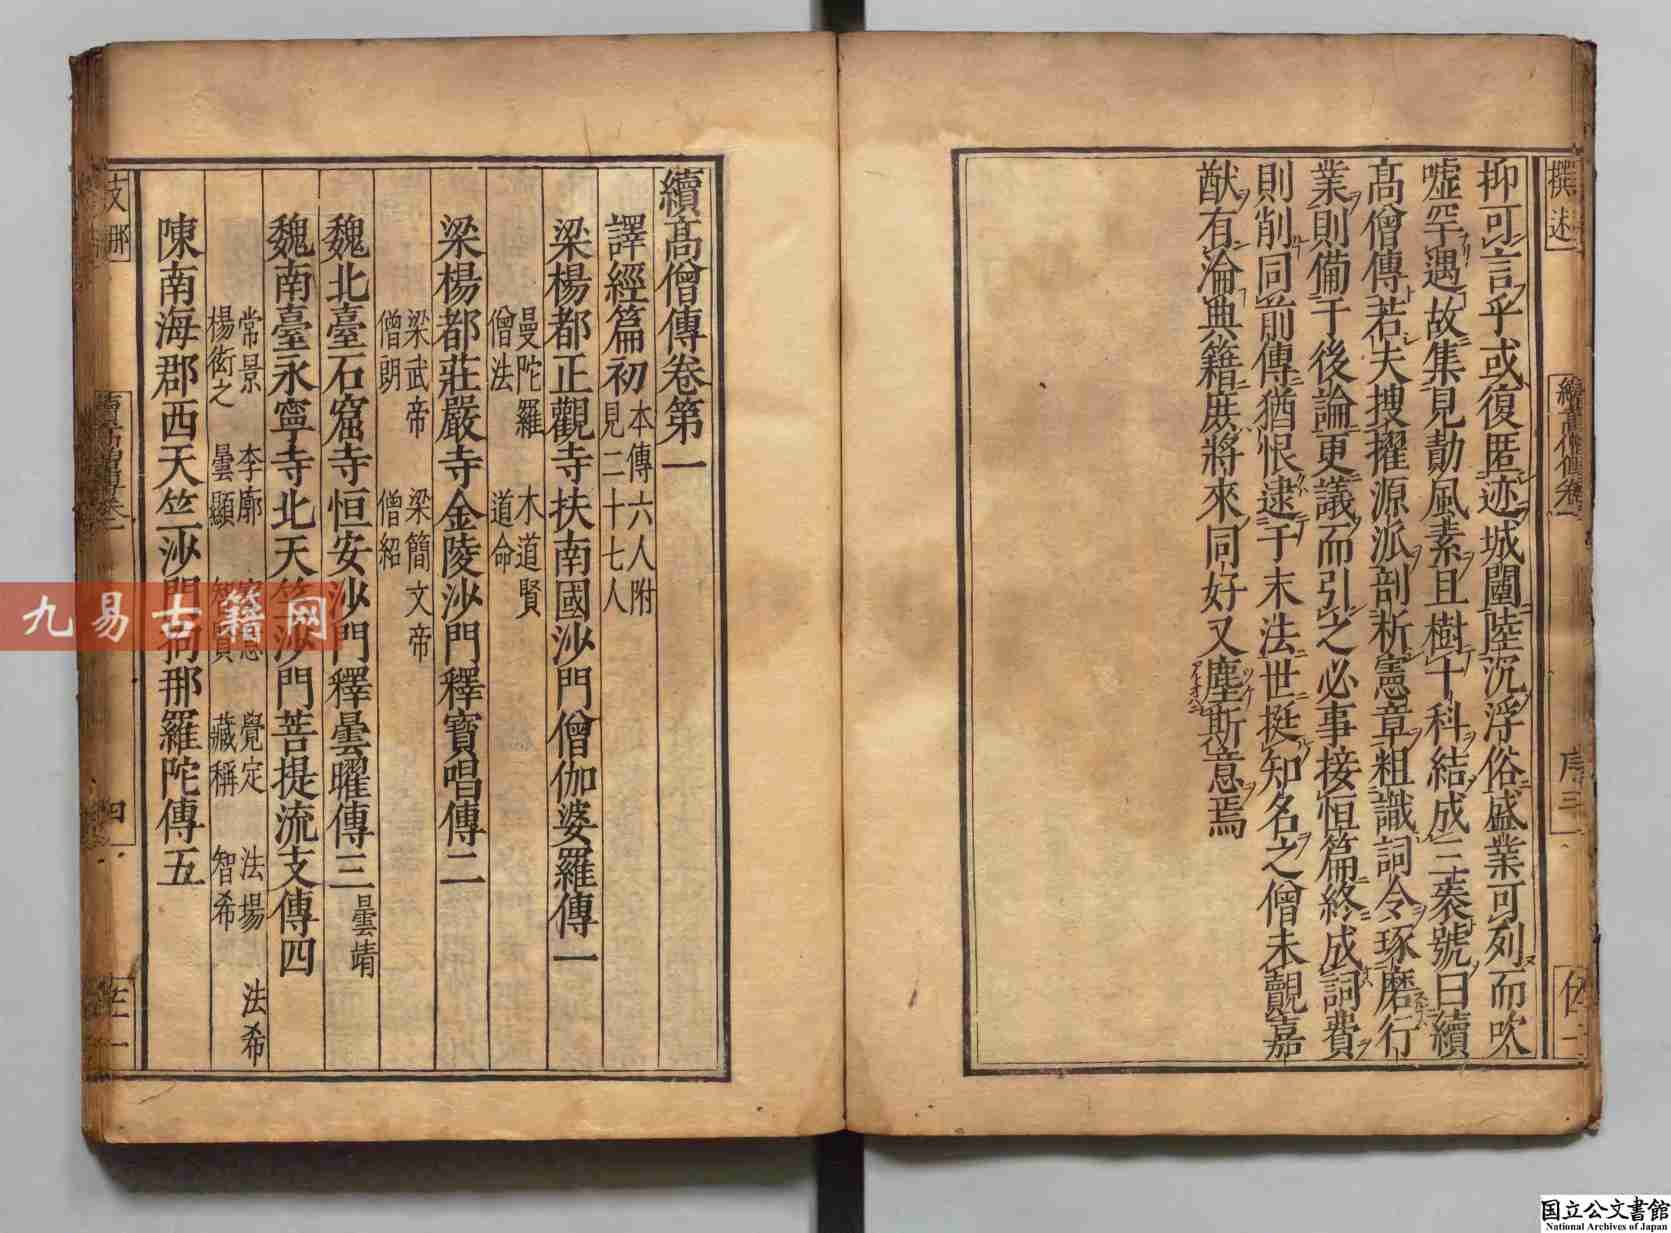 撰述
續高僧傳卷
序三
抑可言乎或復匿迹城闉陸沉浮俗盛業可列而吹
噓罕遇故集見勣風素且樹十科結成三袠號曰續
高僧傳若夫搜擢源派剖析憲章粗識詞令琢磨行
業則備于後論更議而引之必事接恒篇終成詞費
則削同前傳猶恨逮于末法世挺知名之僧未覿嘉
猷有淪典籍庶將來同好又塵斯意焉
續高僧傳卷第一
譯經篇初 本傳六人附
見二十七人
梁楊都正觀寺扶南國沙門僧伽婆羅傳一
曼陀羅 木道賢
僧法 道命
梁楊都莊嚴寺金陵沙門釋寶唱傳二
梁武帝 梁簡文帝
僧朗 僧紹
魏北臺石窟寺恒安沙門釋曇曜傳三 曇靖
魏南臺永寧寺北天竺沙門菩提流支傳四
常景 李廓 覺定 法場 法希
楊衒之 曇顯 智賢 藏稱 智希
陳南海郡西天竺沙門拘那羅陀傳五
支那
續高僧傳卷一
四
九易古籍网
国立公文書館
National Archives of Japan